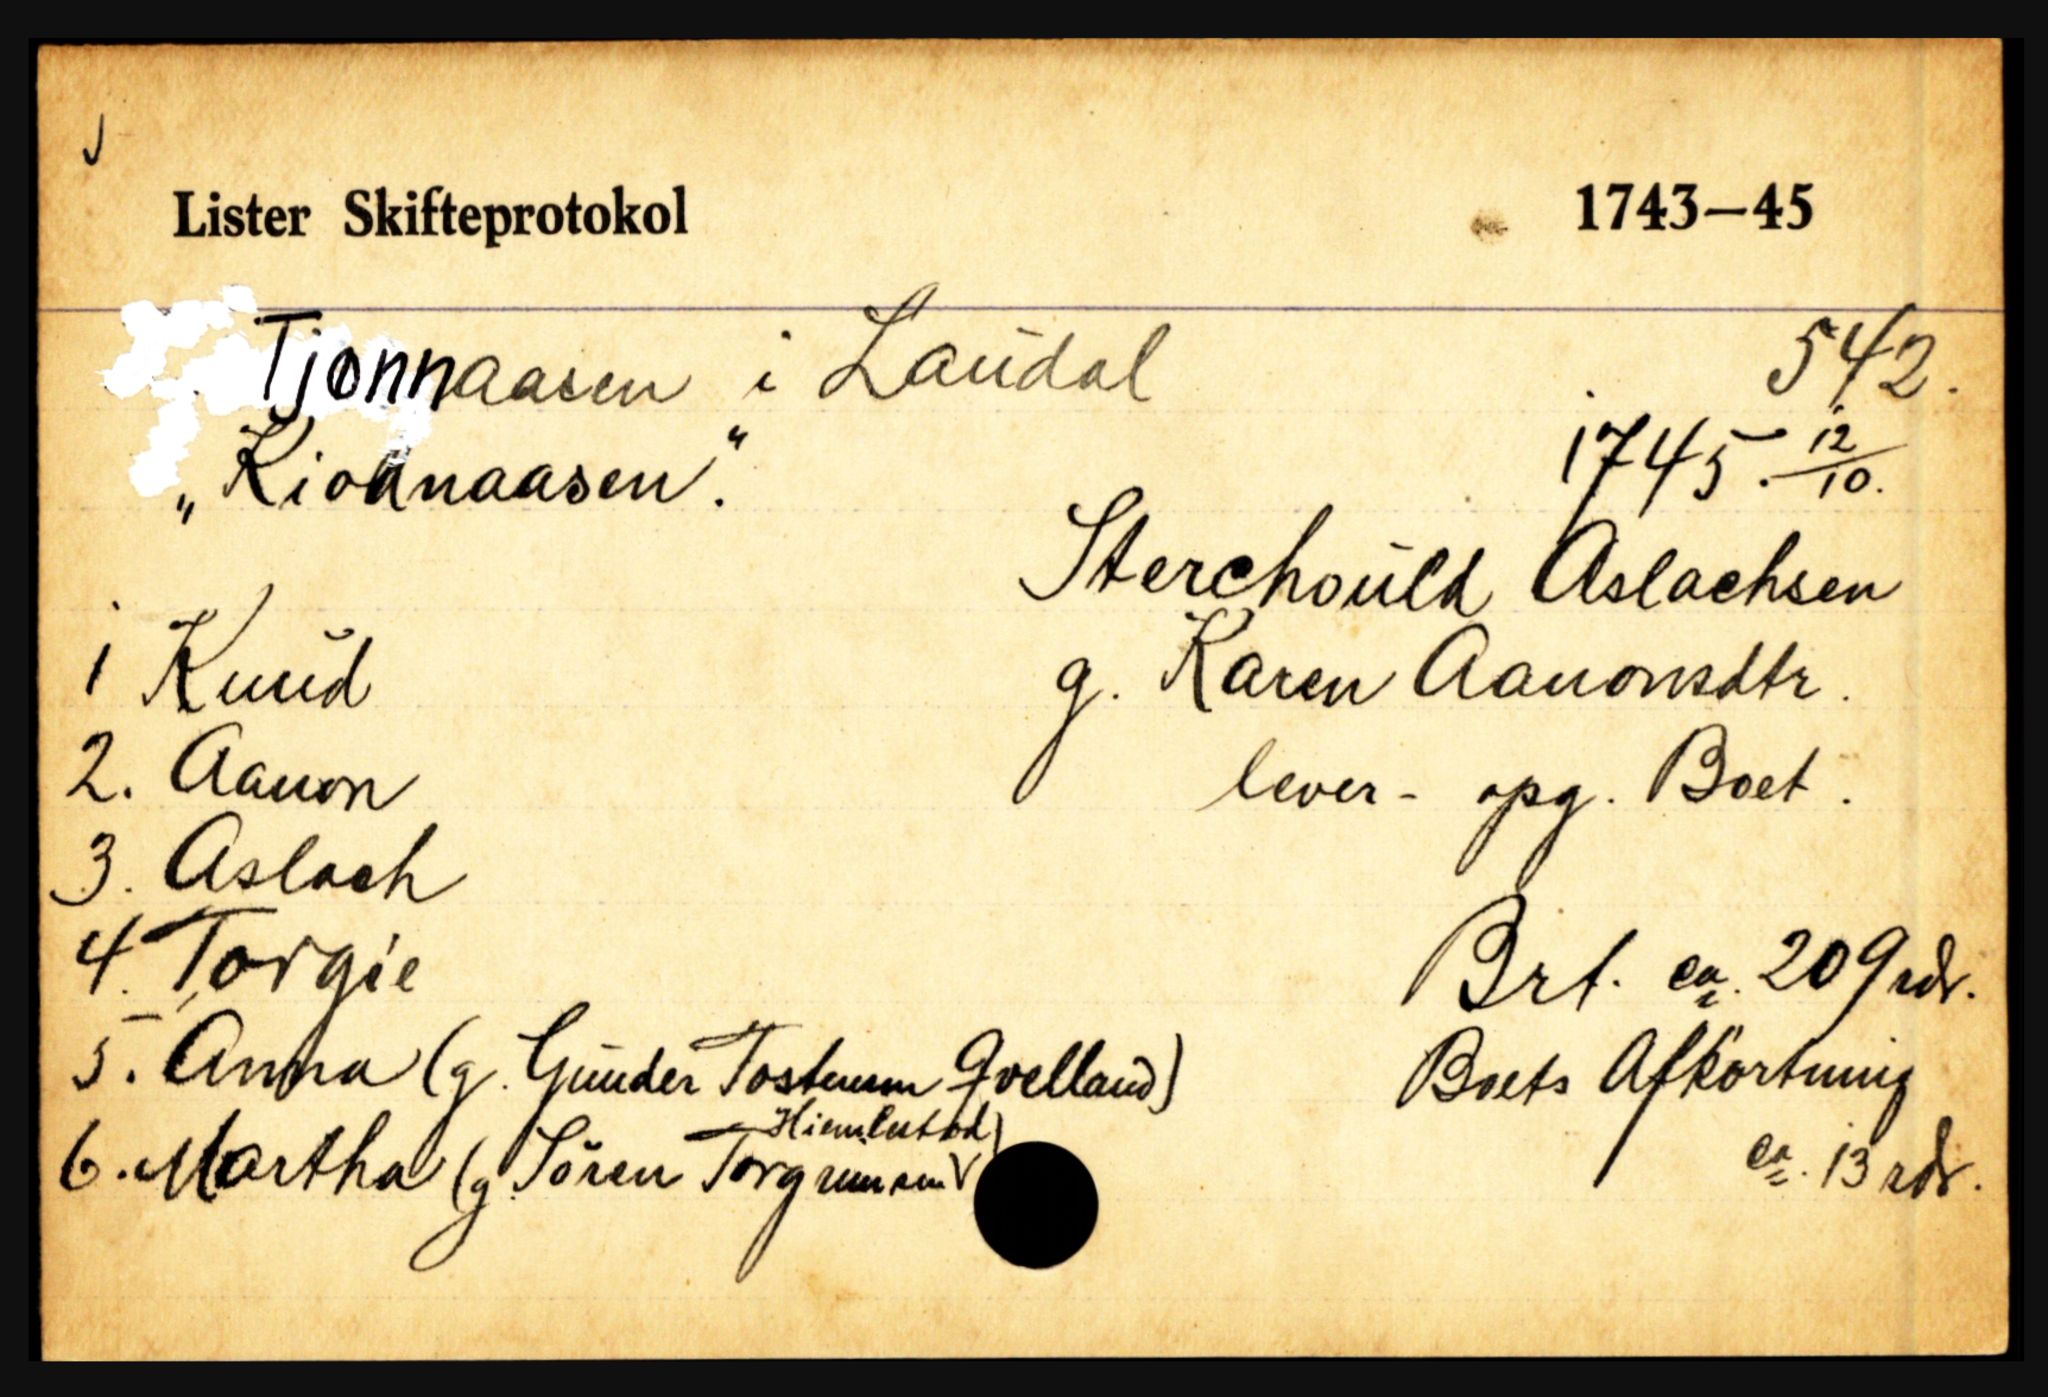 Lister Skifteprotokol 1743—45
Tjonnaasen i Laudal 542.
„Kionnaasen". 1745. 12/10.
Sterchould Aslachsen
1 Knud g. Karen Aanonsdtr.
2. Aanon lever - opg. Boet.
3. Aslach
4. Torgie Brt. ca. 209 rdr.
5. Anna (g. Gunder Tostensen Qvelland) Boets Afkortning
Hiemlestad)
6. Martha (g. Sören ca. 13 rdr.